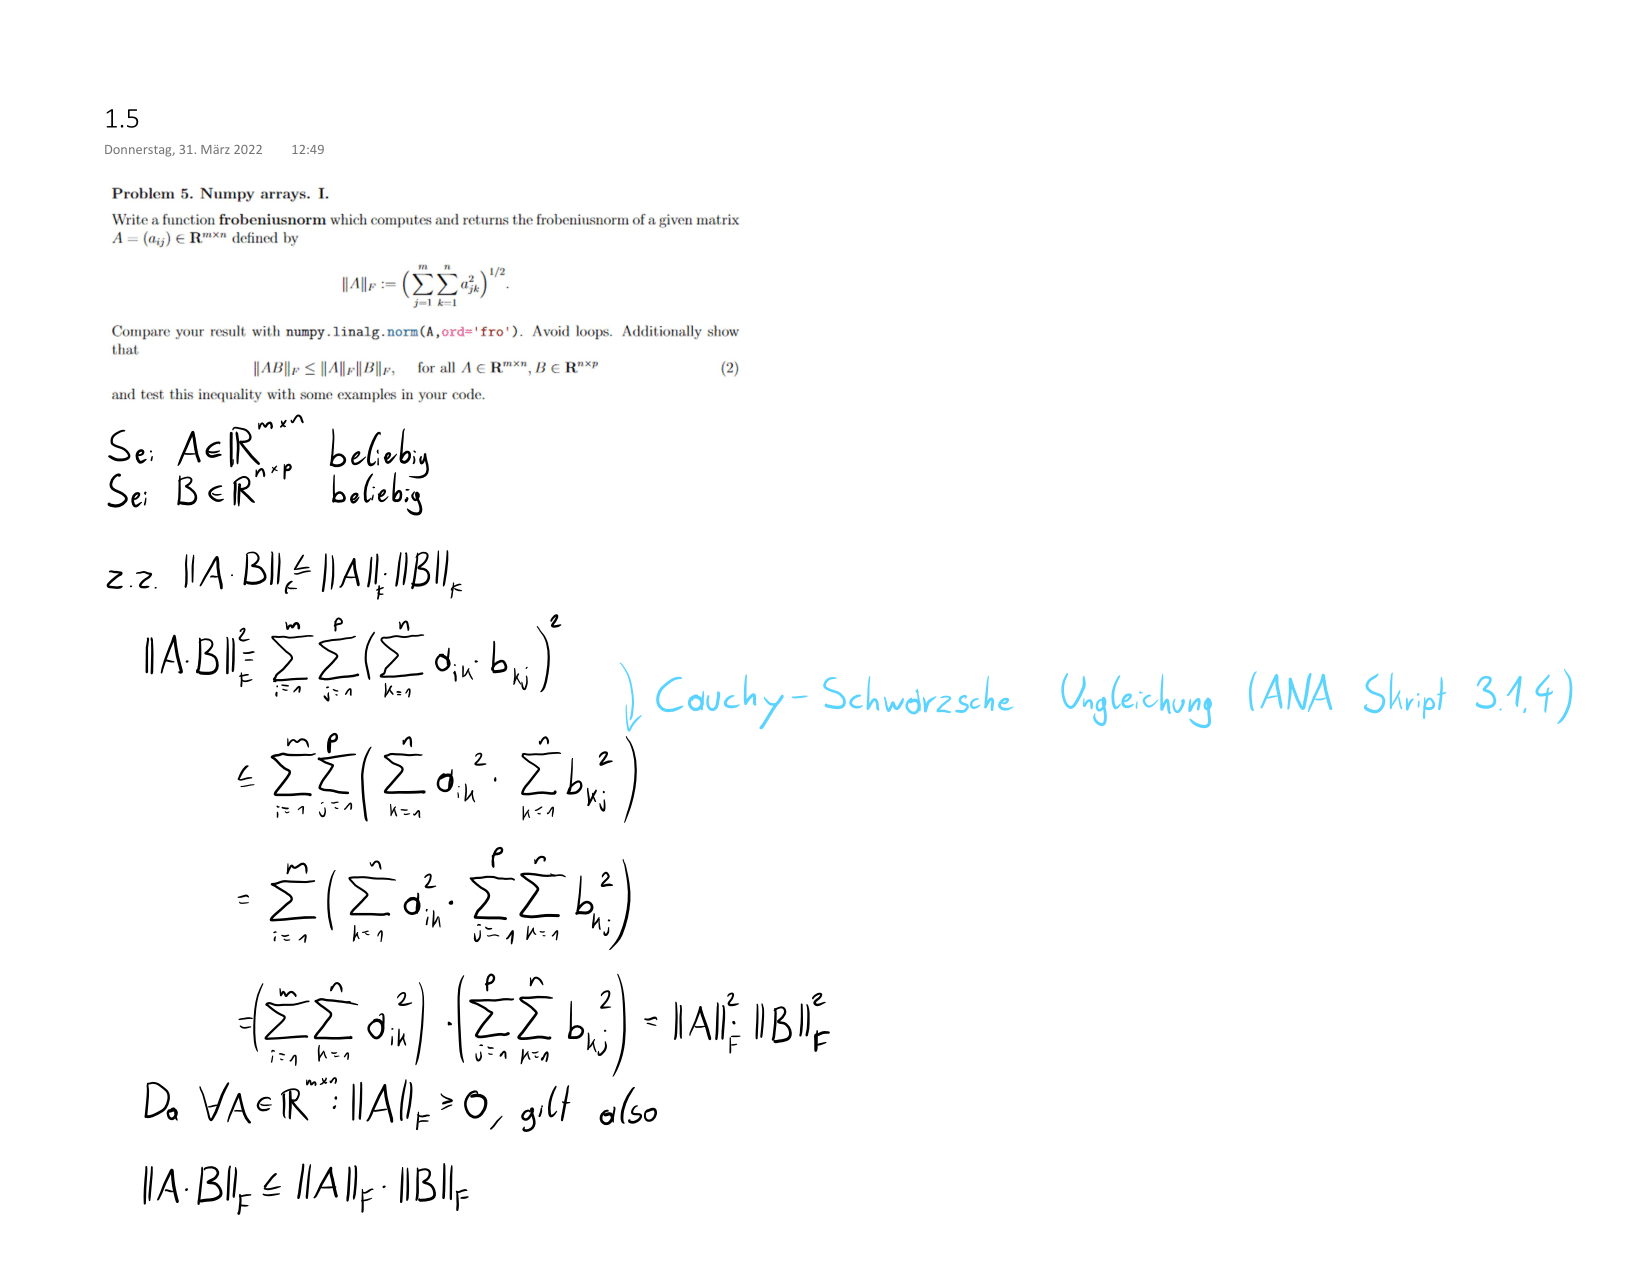 1.5
Donnerstag, 31. März 2022 12:49
Problem 5. Numpy arrays. I.
Write a function frobeniusnorm which computes and returns the frobeniusnorm of a given matrix
A = (a_{ij}) ∈ R^{m×n} defined by
‖A‖_F := (∑_{j=1}^{m} ∑_{k=1}^{n} a_{jk}^2)^{1/2}.
Compare your result with numpy.linalg.norm(A,ord='fro'). Avoid loops. Additionally show
that
‖AB‖_F ≤ ‖A‖_F‖B‖_F, for all A ∈ R^{m×n}, B ∈ R^{n×p} (2)
and test this inequality with some examples in your code.
Sei A∈ℝ^{m×n} beliebig
Sei B∈ℝ^{n×p} beliebig
z.z. ‖A·B‖_F ≤ ‖A‖_F·‖B‖_F
‖A·B‖_F^2 = ∑_{i=1}^{m} ∑_{j=1}^{p} (∑_{k=1}^{n} a_{ik}·b_{kj})^2
Cauchy-Schwarzsche Ungleichung (ANA Skript 3.1.4)
≤ ∑_{i=1}^{m} ∑_{j=1}^{p} (∑_{k=1}^{n} a_{ik}^2 · ∑_{k=1}^{n} b_{kj}^2)
= ∑_{i=1}^{m} (∑_{k=1}^{n} a_{ik}^2 · ∑_{j=1}^{p} ∑_{k=1}^{n} b_{kj}^2)
= (∑_{i=1}^{m} ∑_{k=1}^{n} a_{ik}^2) · (∑_{j=1}^{p} ∑_{k=1}^{n} b_{kj}^2) = ‖A‖_F^2 · ‖B‖_F^2
Da ∀A∈ℝ^{m×n}: ‖A‖_F ≥ 0, gilt also
‖A·B‖_F ≤ ‖A‖_F · ‖B‖_F